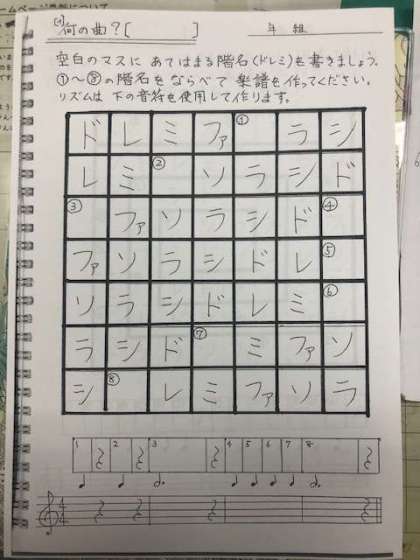 何の曲?[ ]
年 組
空白のマスに あてはまる階名(ドレミ)を書きましょう。
①〜⑧の階名をならべて 楽譜を作ってください。
リズムは 下の音符を使用して作ります。
ド レ ミ ファ ① ラ シ
レ ミ ② ソ ラ シ ド
③ ファ ソ ラ シ ド ④
ファ ソ ラ シ ド レ ⑤
ソ ラ シ ド レ ミ ⑥
ラ シ ド ⑦ ミ ファ ソ
シ ⑧ レ ミ ファ ソ ラ
1 2 3 4 5 6 7 8
4
4